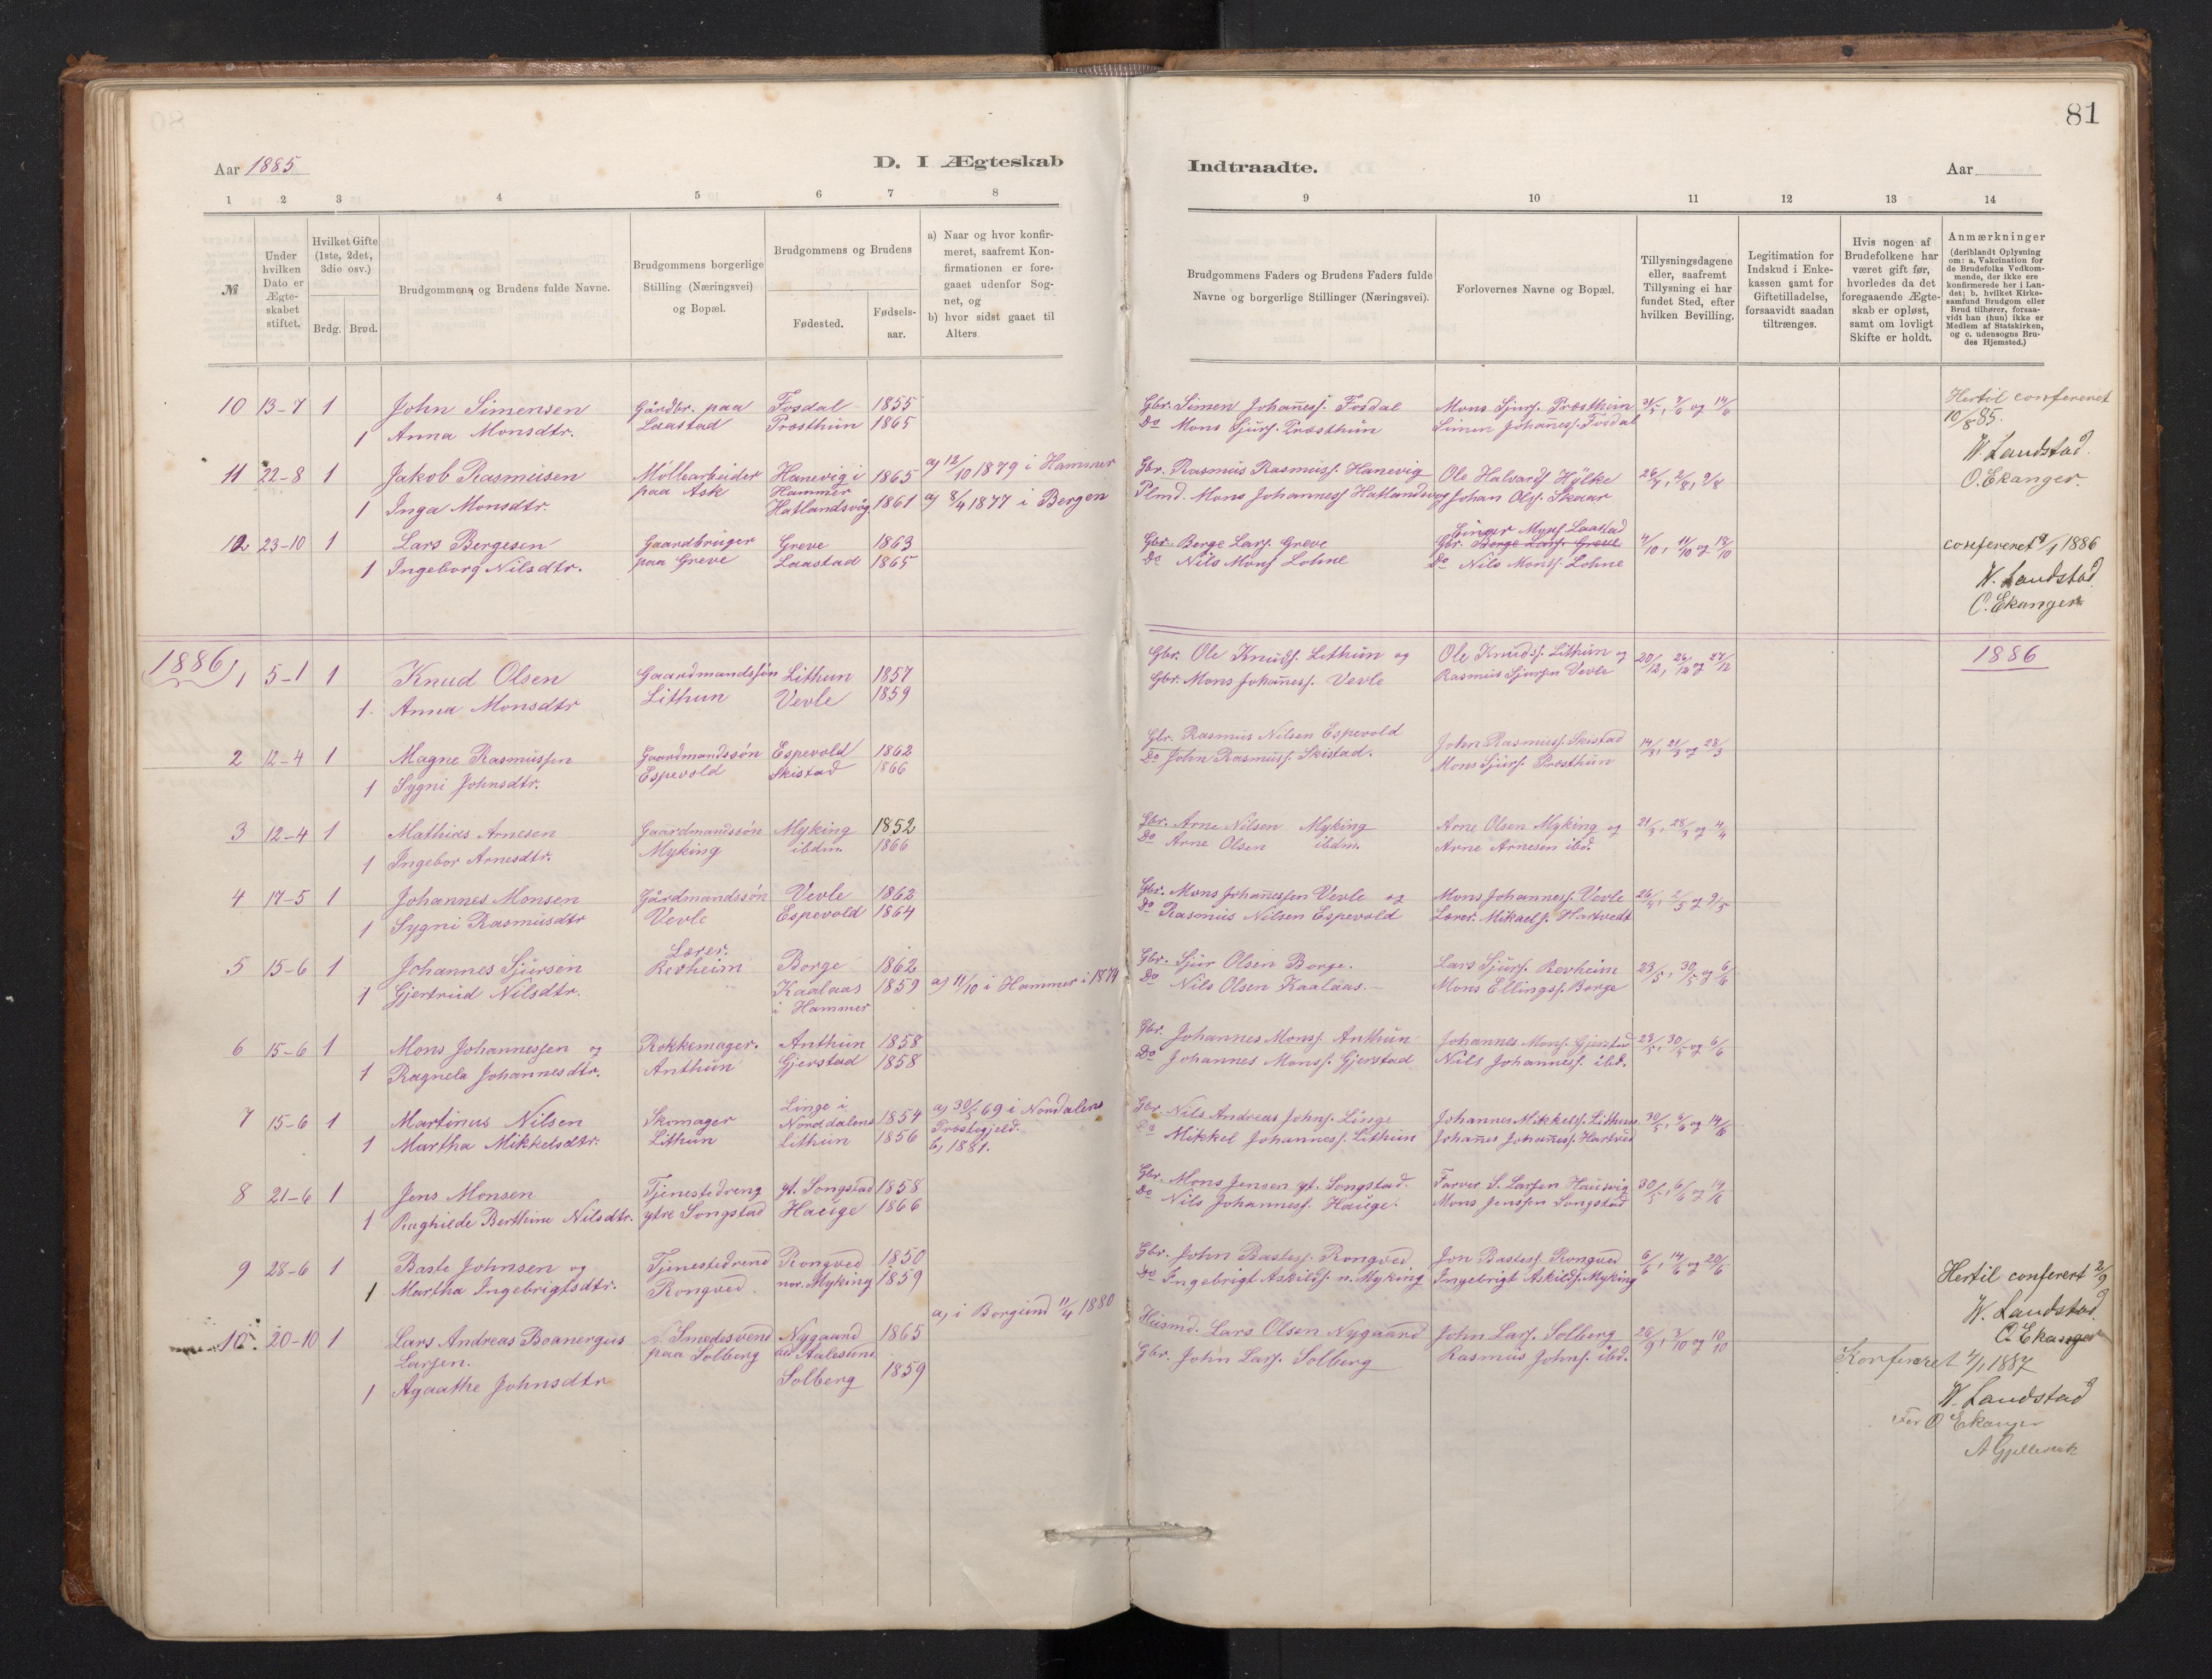 81
Aar 1885
D. I Ægteskab
Indtraadte.
Aar
1 2 3 4 5 6 7 8
9 10 11 12 13 14
№
Under hvilken Dato er Ægte-skabet stiftet.
Hvilket Gifte (1ste, 2det, 3die osv.)
Brdg. Brud.
Brudgommens og Brudens fulde Navne.
Brudgommens borgerlige Stilling (Næringsvei) og Bopæl.
Brudgommens og Brudens
Fødested.
Fødsels-aar.
a) Naar og hvor konfir-meret, saafremt Kon-firmationen er fore-gaaet udenfor Sog-net, og
b) hvor sidst gaaet til Alters.
Brudgommens Faders og Brudens Faders fulde Navne og borgerlige Stillinger (Næringsvei).
Forlovernes Navne og Bopæl.
Tillysningsdagene eller, saafremt Tillysning ei har fundet Sted, efter hvilken Bevilling.
Legitimation for Indskud i Enke-kassen samt for Giftetilladelse, forsaavidt saadan tiltrænges.
Hvis nogen af Brudefolkene har været gift før, hvorledes da det foregaaende Ægte-skab er opløst, samt om lovligt Skifte er holdt.
Anmærkninger (deriblandt Oplysning om: a. Vakcination for de Brudefolks Vedkom-mende, der ikke ere konfirmerede her i Lan-det; b. hvilket Kirke-samfund Brudgom eller Brud tilhører, forsaa-vidt han (hun) ikke er Medlem af Statskirken, og c. udensogns Bru-des Hjemsted.)
10 13-7 1 John Simensen Gårdbr. paa Fosdal 1855 Gbr. Simen Johañesf. Fosdal Mons Sjurs. Præsthun 31/5, 7/6 og 14/6 Hertil confereret
1 Anna Monsdtr. Laastad Præsthun 1865 Do Mons Sjurs. Præsthun Simen Johanesf. Fosdal 10/8 85.
W. Landstad.
11 22-8 1 Jakob Rasmusen Møllearbeider Hanevig i 1865 a) 12/10 1879 i Hammer Gbr. Rasmus Rasmusf. Hanevig Ole Halvards Hylke 26/7, 2/8, 9/8 O. Ekanger.
paa Ask Hammer
1 Inga Monsdtr. Hatlandsvåg 1861 a) 8/4 1877 i Bergen Plmd. Mons Johannesf Hatlandsvåg Johan Ols. Skaar
Mons. Laastad
12 23-10 1 Lars Bergesen Gaardbruger Greve 1863 Gbr. Berge Lars. Greve Gbr. Berge Lars. Greve 4/10, 11/10 og 18/10 1886
1 Ingeborg Nilsdtr. paa Greve Laastad 1865 Do Nils Mons Lohne Do Nils Mons. Lohne
W. Landstad
O. Ekanger
1886 1886
1 5-1 1 Knud Olsen Gaardmandssøn Lithun 1857 Gbr. Ole Knuds. Lithun og Ole Knuds. Lithun og 20/12, 26/12 og 27/12
1. Anna Monsdtr Lithun Vevle 1859 Gbr. Mons Johañesf. Vevle Rasmus Sjursen Vevle
2 12-4 1 Magne Rasmussen Gaardmandssøn Espevold 1862 Gbr. Rasmus Nilsen Espevold John Rasmusf. Skistad 14/3, 21/3 og 28/3
1 Sygni Johnsdtr. Espevold Skistad 1866 Do John Rasmusf. Skistad. Mons Sjurs. Præsthun
3 12-4 1 Mathias Arnesen Gaardmandssøn Myking 1852 Gbr. Arne Nilsen Myking Arne Olsen Myking og 21/3, 28/3 og 4/4
1 Ingebor Arnesdtr. Myking ibdm. 1866 Do Arne Olsen ibdm. Arne Arnesen ibd.
4 17-5 1 Johannes Monsen Gårdmandssøn Vevle 1862 Gbr. Mons Johañessen Vevle og Mons Johannesf. Vevle 26/4, 2/5 og 9/5
1 Sygni Rasmusdtr Vevle Espevold 1864 Do Rasmus Nilsen Espevold Lærer. Mikaels. Hartvedt
5 15-6 1 Johannes Sjursen Lærer. Revheim Borge 1862 Gbr. Sjur Olsen Borge. Lars Sjurs. Revheim 23/5, 30/5 og 6/6
1 Gjertrud Nilsdtr. Kaalaas i Hammer 1859 a) 11/10 i Hammer i 1874 Do Nils Olsen Kaalaas. Mons Ellings. Borge
6 15-6 1 Mons Johannessen og Rokkemager. Anthun 1858 Gbr. Johannes Mons. Anthun Johannes Mons. Gjerstad 23/5, 30/5 og 6/6
1 Ragnela Johannesdtr. Anthun Gjerstad 1858 Do Johannes Mons. Gjerstad Nils Johannesf. ibd.
7 15-6 1 Martinus Nilsen Skomager Linge i Norddalens 1854 a) 30/5 69 i Norddalens Præstegjeld. Gbr. Nils Andreas Johns. Linge Johannes Mikkels. Lithun 30/5, 6/6 og 14/6
1 Martha Mikkelsdtr. Lithun Lithun 1856 b) 1881. Do Mikkel Johannesf. Lithun Johañes Johañesf. Hartved
8 21-6 1 Jens Monsen Tjenestedreng yt. Songstad 1858 Gbr. Mons Jensen yt. Songstad. Farver S. Larsen Hausvig 30/5, 6/6 og 14/6
1 Raghilde Berthine Nilsdtr. ytre Songstad Hauge 1866 Do Nils Johannesf. Hauge. Mons Jenssen Songstad
9 28-6 1 Baste Johnsen og Tjenestedreng Rongved 1850 Gbr. John Bastesf. Rongved Jon Bastesf. Rongved 6/6, 14/6 og 20/6 Hertil conferert 2/9
1 Martha Ingebrigtsdtr. Rongved. nor. Myking 1859 Do Ingebrigt Askilds. n. Myking Ingebrigt Askilds. Myking
W. Landstad.
O. Ekanger
10. 20-10 1 Lars Andreas Boanergus Larsen. Smedesvend Nygaard ved Aalesund 1865 a) i Borgund 11/4 1880 Husmd. Lars Olsen Nygaard John Lars. Solberg 26/9, 3/10 og 10/10
1 Agaathe Johnsdtr paa Solberg Solberg 1859 Gbr. John Lars. Solberg Rasmus Johns. ibd. Konfereret 4/1 1887
W. Landstad
For O Ekanger
A Gjellesvik